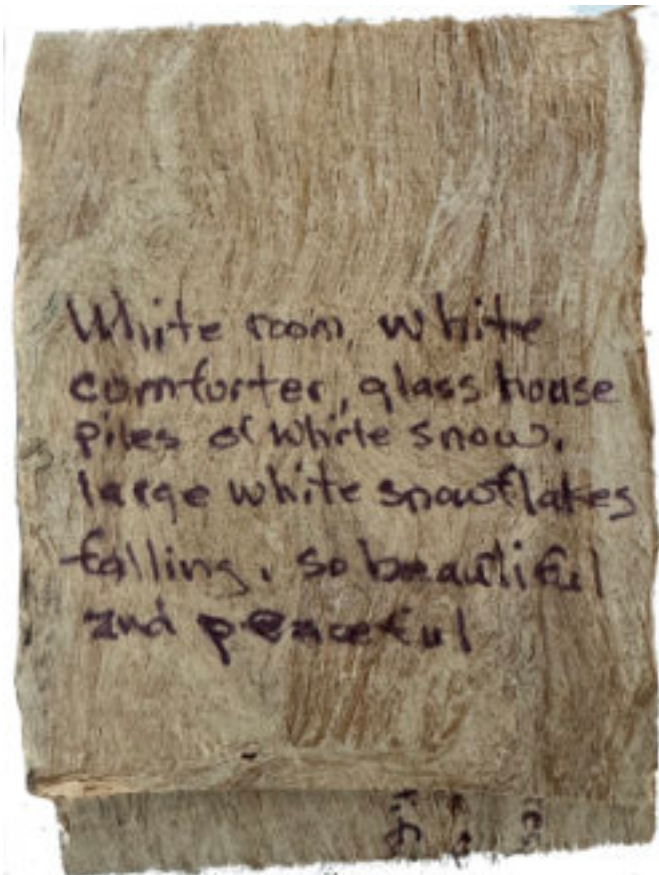 White room, white
comforter, glass house
piles of white snow.
large white snowflakes
falling. so beautiful
and peaceful